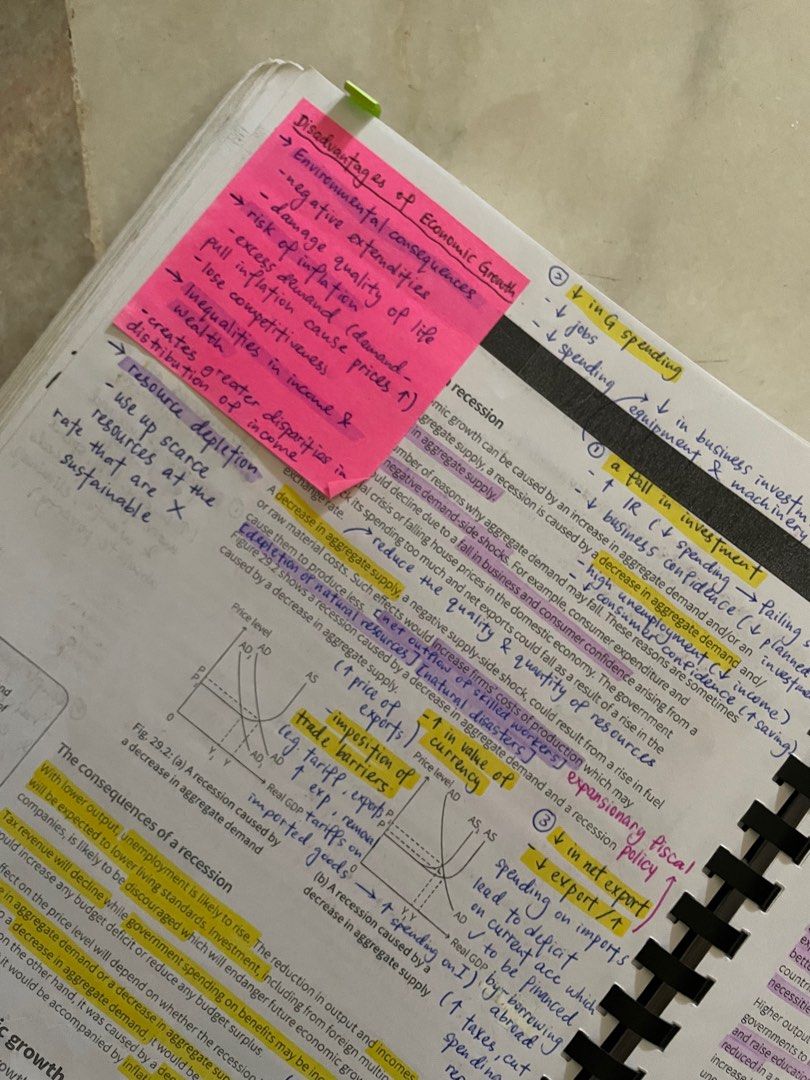 Disadvantages of Economic Growth
→ Environmental consequences
- negative externalities
- damage quality of life
→ risk of inflation
- excess demand (demand-
pull inflation cause prices ↑)
- lose competitiveness
→ Inequalities in income &
wealth
- creates greater disparities in
distribution of income
→ resource depletion
- use up scarce
resources at the
rate that are X
sustainable
② ↓ in G spending
- ↓ jobs
- ↓ spending
↓ in business investm
equipment & machinery
① a fall in investment
- ↑ IR (↓ spending → failing
↓ business confidence (↓ planned
investme
- high unemployment (↓ income)
- ↓ consumer confidence (↑ saving)
recession
mic growth can be caused by an increase in aggregate demand and/or an
ggregate supply, a recession is caused by a decrease in aggregate demand and/
in aggregate supply.
mber of reasons why aggregate demand may fall. These reasons are sometimes
negative demand-side shocks. For example, consumer expenditure and
uld decline due to a fall in business and consumer confidence arising from a
al crisis or falling house prices in the domestic economy. The government
its spending too much and net exports could fall as a result of a rise in the
exchange rate.
reduce the quality & quantity of resources
A decrease in aggregate supply, a negative supply-side shock could result from a rise in fuel
or raw material costs. Such effects would increase firms' costs of production which may
cause them to produce less.
[depletion of natural resources] [net outflow of skilled workers] [natural disasters]
Figure 29.2 shows a recession caused by a decrease in aggregate demand and a recession
caused by a decrease in aggregate supply.
expansionary fiscal
policy
Price level
AD₁ AD
AS
P
P₁
0
Y₁ Y
AD₁ AD
Real GDP
Fig. 29.2: (a) A recession caused by
a decrease in aggregate demand
(↑ price of
exports)
- ↑ in value of
currency
- imposition of
trade barriers
(eg. tariff, exports
↑ exp, removal
tariffs on
imported goods → ↑ spending on I)
Price level
AD
AS₁ AS
P₁
P
0
Y₁ Y
AD
Real GDP
(b) A recession caused by a
decrease in aggregate supply
③ ↓ in net export
- ↓ export / ↑
spending on imports
lead to deficit
on current acc which
✓ to be financed
by borrowing
abroad
(↑ taxes, cut
spending
The consequences of a recession
With lower output, unemployment is likely to rise. The reduction in output and incomes
will be expected to lower living standards. Investment, including from foreign multin
companies, is likely to be discouraged which will endanger future economic grow
Tax revenue will decline while government spending on benefits may be inc
ould increase any budget deficit or reduce any budget surplus.
ffect on the price level will depend on whether the recession
e in aggregate demand or a decrease in aggregate sup
a decrease in aggregate demand, it would be
on the other hand, it was caused by a de
it would be accompanied by inflat
ic growth
Higher outpu
governments to
and raise educati
reduced in a
increase